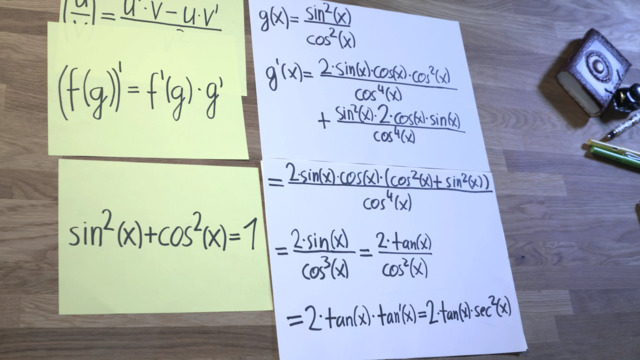 (u/v)' = (u'·v−u·v')
(f(g))' = f'(g)·g'
sin²(x)+cos²(x)=1
g(x)= sin²(x)/cos²(x)
g'(x)= 2·sin(x)·cos(x)·cos²(x)/cos⁴(x)
+ sin²(x)·2·cos(x)·sin(x)/cos⁴(x)
= 2·sin(x)·cos(x)·(cos²(x)+sin²(x))/cos⁴(x)
= 2·sin(x)/cos³(x) = 2·tan(x)/cos²(x)
=2·tan(x)·tan'(x)=2·tan(x)·sec²(x)